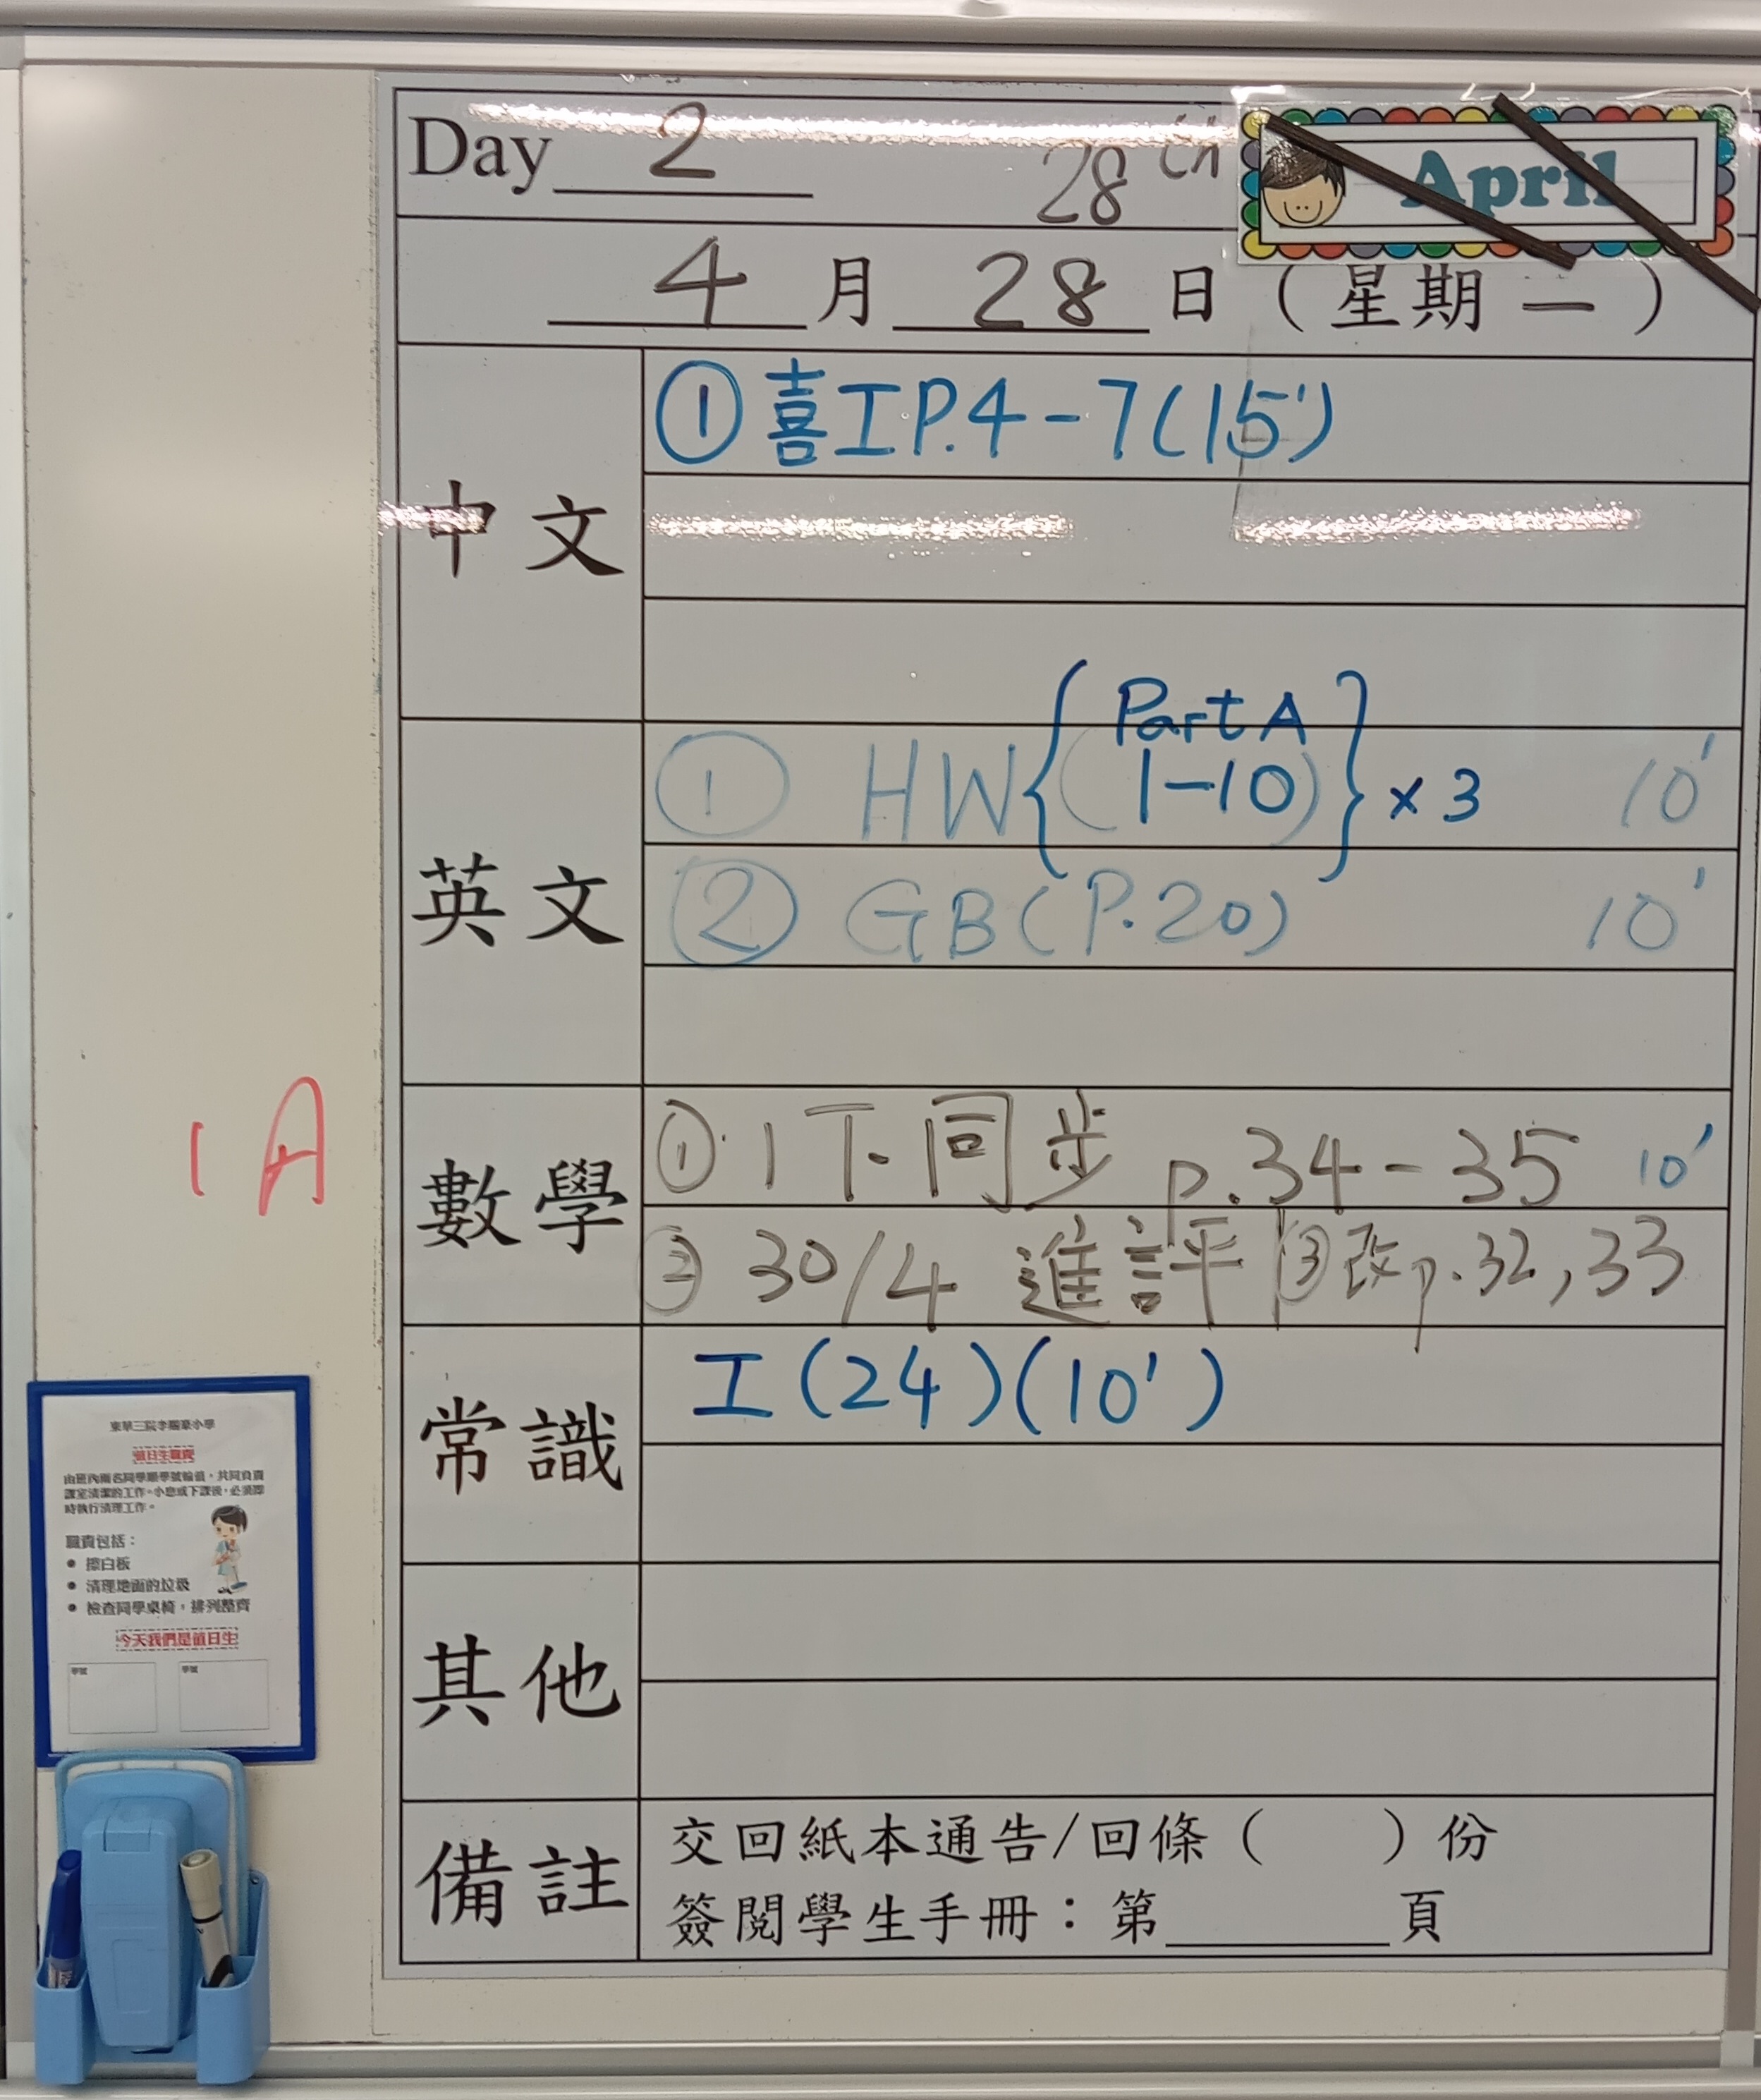 Day 2 28th April
4月28日（星期一）
中文
① 喜工P.4-7(15')
英文
① HW{(Part A 1-10)}×3 10'
② GB(P.20) 10'
數學
① 1下同步 p.34-35 10'
② 30/4 進評 ③改p.32,33
常識
工(24)(10')
其他
備註
交回紙本通告/回條（ ）份
簽閱學生手冊：第______頁
1A
值日生職責
由班內兩名同學順學號輪值，共同負責
課室清潔的工作。小息或下課後，必須即
時執行清理工作。
職責包括：
● 擦白板
● 清理地面的垃圾
● 檢查同學桌椅，排列整齊
今天我們是值日生
學號 學號